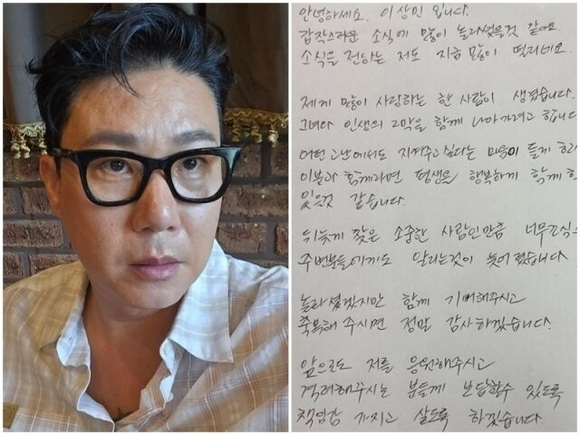 안녕하세요. 이상민 입니다.
갑작스러운 소식에 많이 놀라셨을것 같아요.
소식을 전하는 저도 지금 많이 떨리네요.
제게 많이 사랑하는 한 사람이 생겼습니다.
그녀와 인생의 2막을 함께 나아가려고 합니다
어떤 고난에서도 지켜주고 싶다는 마음이 들게
이분과 함께라면 평생을 행복하게 함께
있을것 같습니다.
뒤늦게 찾은 소중한 사람인만큼 너무
주변분들에게도 알리는것이 늦어졌습니다
놀라셨겠지만 함께 기뻐해주시고
축복해 주시면 정말 감사하겠습니다.
앞으로도 저를 응원해주시고
격려해주시는 분들께 보답할수 있도록
책임감 가지고 살도록 하겠습니다.